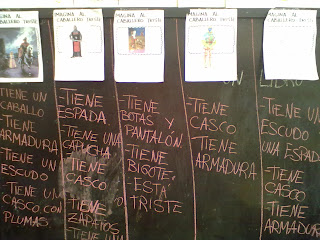 MAGINA AL
CABALLERO TRISTE
TIENE UN
CABALLO
-TIENE
ARMADURA
-TIENE UN
ESCUDO
-TIENE UN
CASCO CON
PLUMAS
MAGINA AL
CABALLERO TRISTE
-TIENE
ESPADA
-TIENE UNA
CAPUCHA
-TIENE
CASCO
-TIENE
ZAPATOS
-TIENE UNA
IMAGINA AL
CABALLERO TRISTE
-TIENE
BOTAS Y
PANTALÓN
-TIENE
BIGOTE
-ESTÁ
TRISTE
IMAGINA AL
CABALLERO TRISTE
UN
-TIENE
CASCO
-TIENE
ARMADURA
MAGINA AL
CABALLERO TRISTE
LIBRO
-TIENE UN
ESCUDO
UNA ESPAD
-TIENE
CASCO
-TIENE
ARMADUR